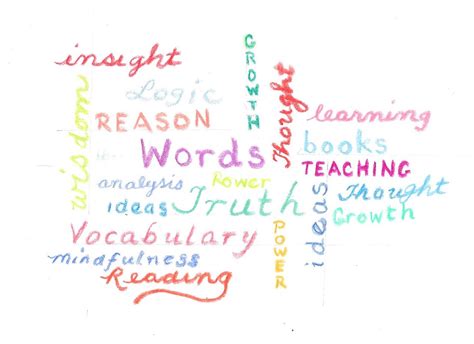 insight
GROWTH
Logic
Thought
learning
wisdom
REASON
books
Words
TEACHING
analysis
Power
Thought
ideas
Truth
ideas
Growth
Vocabulary
POWER
mindfulness
Reading